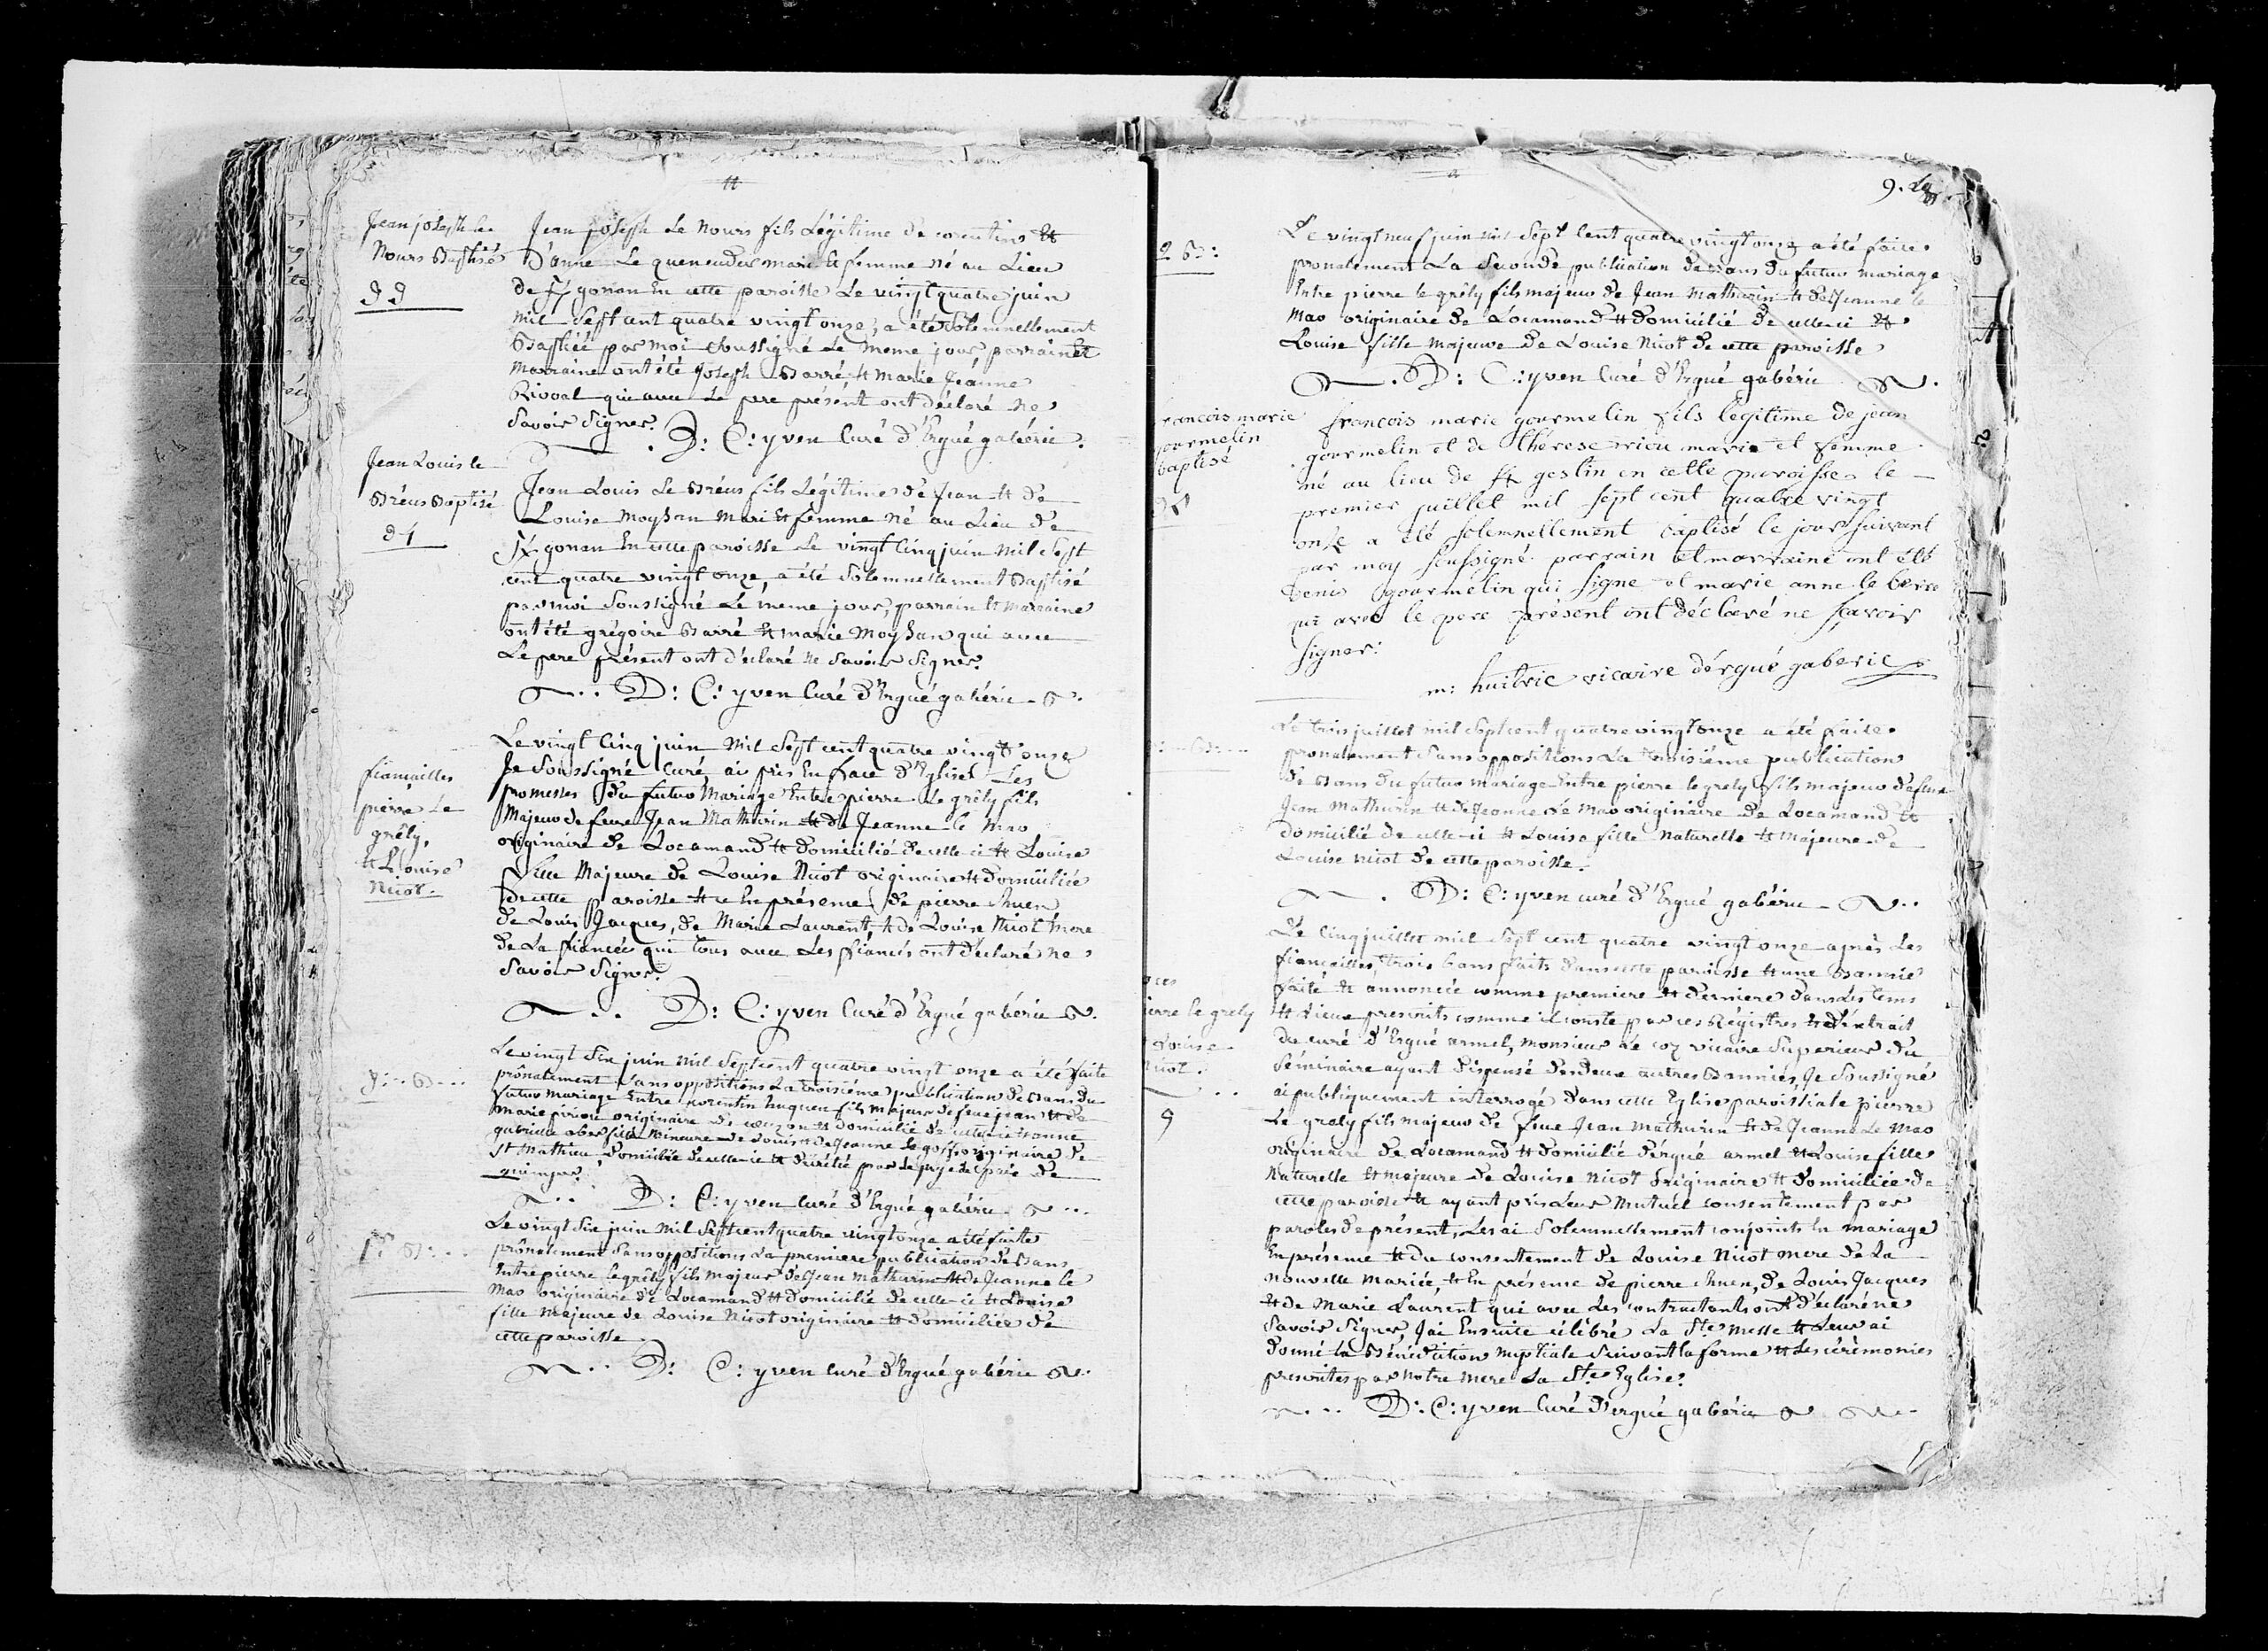 Jean joseph le
Nours Baptisé
33
Jean joseph Le Nours fils Légitime de corentin et
D'anne Le queneuder mari et femme né au Lieu
de Kgonan En cette paroisse Le vingt quatre juin
mil sept cent quatre vingt onze, a été Solemnellement
Baptisée par moi Soussigné Le meme jour, parrain et
marraine ont été Joseph Barré et marie Jeanne
Rivoal qui avec Le pere présent ont déclaré ne
Savoir Signer.
D: C: yven Curé d'Ergué gabéric.
Jean Louis le
Bréus Baptisé
34
Jean Louis Le Bréus fils Légitime de Jean et de
Louise Moysan Mari et femme né au Lieu de
Kgonan En cette paroisse Le vingt Cinq juin Mil Sept
cent quatre vingt onze, a été Solemnellement Baptisé
par moi Soussigné Le meme jour, parrain et marraine
ont été grégoire Barré et marie Moysan qui avec
Le pere présent ont déclaré ne Savoir Signer.
D: C: yven Curé d'Ergué gabéric
fiancailles
pierre Le
grêly,
et Louise
Nicot.
Le vingt Cinq juin Mil Sept cent quatre vingt onze
Je Soussigné Curé, ai pris En face d'Eglise Les
promesses du futur Mariage Entre pierre Le grêly fils
Majeur de feue Jean Mathurin et de Jeanne le Mao
originaire de Locamand et domicilié de celle ci et Louise
fille Majeure de Louise Nicot originaire et domiciliée
de cette paroisse et ce En présence de pierre
de Louis Jacques, de Marie Laurent, et de Louise Nicot Mere
de La fiancée qui tous avec Les fiancés ont déclaré ne
Savoir Signer.
D: C: yven Curé d'Ergué gabéric
3: B:
Le vingt Six juin Mil Sept cent quatre vingt onze a été faite
prônalement Sans oppositions La troisiéme publication de Bans du
futur Mariage Entre corentin huguen fils Majeur de feue jean et de
Marie originaire de et domicilié de celle ci et anne
fille Mineure de Louis et de Jeanne le goff originaire de
St Mathieu, domiciliée de celle ci et par de
quimper.
D: C: yven Curé d'Ergué gabéric
1re B:
Le vingt Six juin Mil Sept cent quatre vingt onze a été faite
prônalement Sans oppositions La premiere publication de Bans
Entre pierre le grêly fils Majeur de Jean Mathurin et de Jeanne le
Mao originaire de Locamand et domicilié de celle ci et Louise
fille Majeure de Louise Nicot originaire et domiciliée de
cette paroisse.
D: C: yven Curé d'Ergué gabéric
9.
2 B:
Le vingt neuf juin Mil Sept Cent quatre vingt onze a été faite
pronalement La Seconde publication de Bans du futur mariage
Entre pierre le grêly fils majeur de Jean Mathurin et de Jeanne le
Mao originaire de Locamand et domicilié de celle ci et
Louise fille majeure de Louise Nicot de cette paroisse
D: C: yven Curé d'Ergué gabéric
francois marie
gourmelin
baptisé
francois marie gourmelin fils légitime de jean
gourmelin et de thérese riou mari et femme
né au lieu de K gestin en cette paroisse le
premier juillet mil sept cent quatre vingt
onze a été solemnellement baptisé le jour suivant
par moy soussigné. parrain et marraine ont été
Denis gourmelin qui signe et marie anne le berre
qui avec le pere présent ont déclaré ne scavoir
signer.
m: huitric vicaire d'ergué gaberic
Le trois juillet mil Sept cent quatre vingt onze a été faite
pronalement Sans oppositions La troisiéme publication
de Bans du futur Mariage Entre pierre le grely fils majeur de feue
Jean Mathurin et de Jeanne le Mao originaire de Locamand et
domicilié de celle ci et Louise fille Naturelle et Majeure de
Louise Nicot de cette paroisse.
D: C: yven curé d'Ergué gabéric
ierre le grely
Louise
Nicot.
9
Le Cinq juillet mil Sept cent quatre vingt onze après Les
fiancailles, trois bans faits dans cette paroisse et une Bannie
faite et annoncée comme premiere et derniere dans Les tems
et Lieux prescrits comme il conste par ces Régistres et L'extrait
du curé d'Ergué armel, Monsieur Le coz vicaire Superieur du
Séminaire ayant dispensé des deux autres Bannies, Je Soussigné
ai publiquement interrogé dans cette Eglise paroissiale pierre
Le grely fils majeur de feue Jean Mathurin et de Jeanne Le Mao
originaire de Locamand et domicilié d'Ergué armel et Louise fille
Naturelle et majeure de Louise Nicot originaire et domiciliée de
cette paroisse et ayant pris Leur Mutuel consentement par
paroles de présent, Les ai Solemnellement conjoints En Mariage
En présence et du consentement de Louise Nicot mere de La
Nouvelle Mariée, et En présence de pierre de Louis Jacques
et de Marie Laurent qui avec Les contractants ont déclaré ne
Savoir Signer, Jai Ensuite célébré La Ste Messe et Leur ai
donné la Bénédiction Nuptiale Suivant la forme et Les cérémonies
prescrites par Notre Mere La Ste Eglise.
D: C: yven Curé d'ergué gabéric